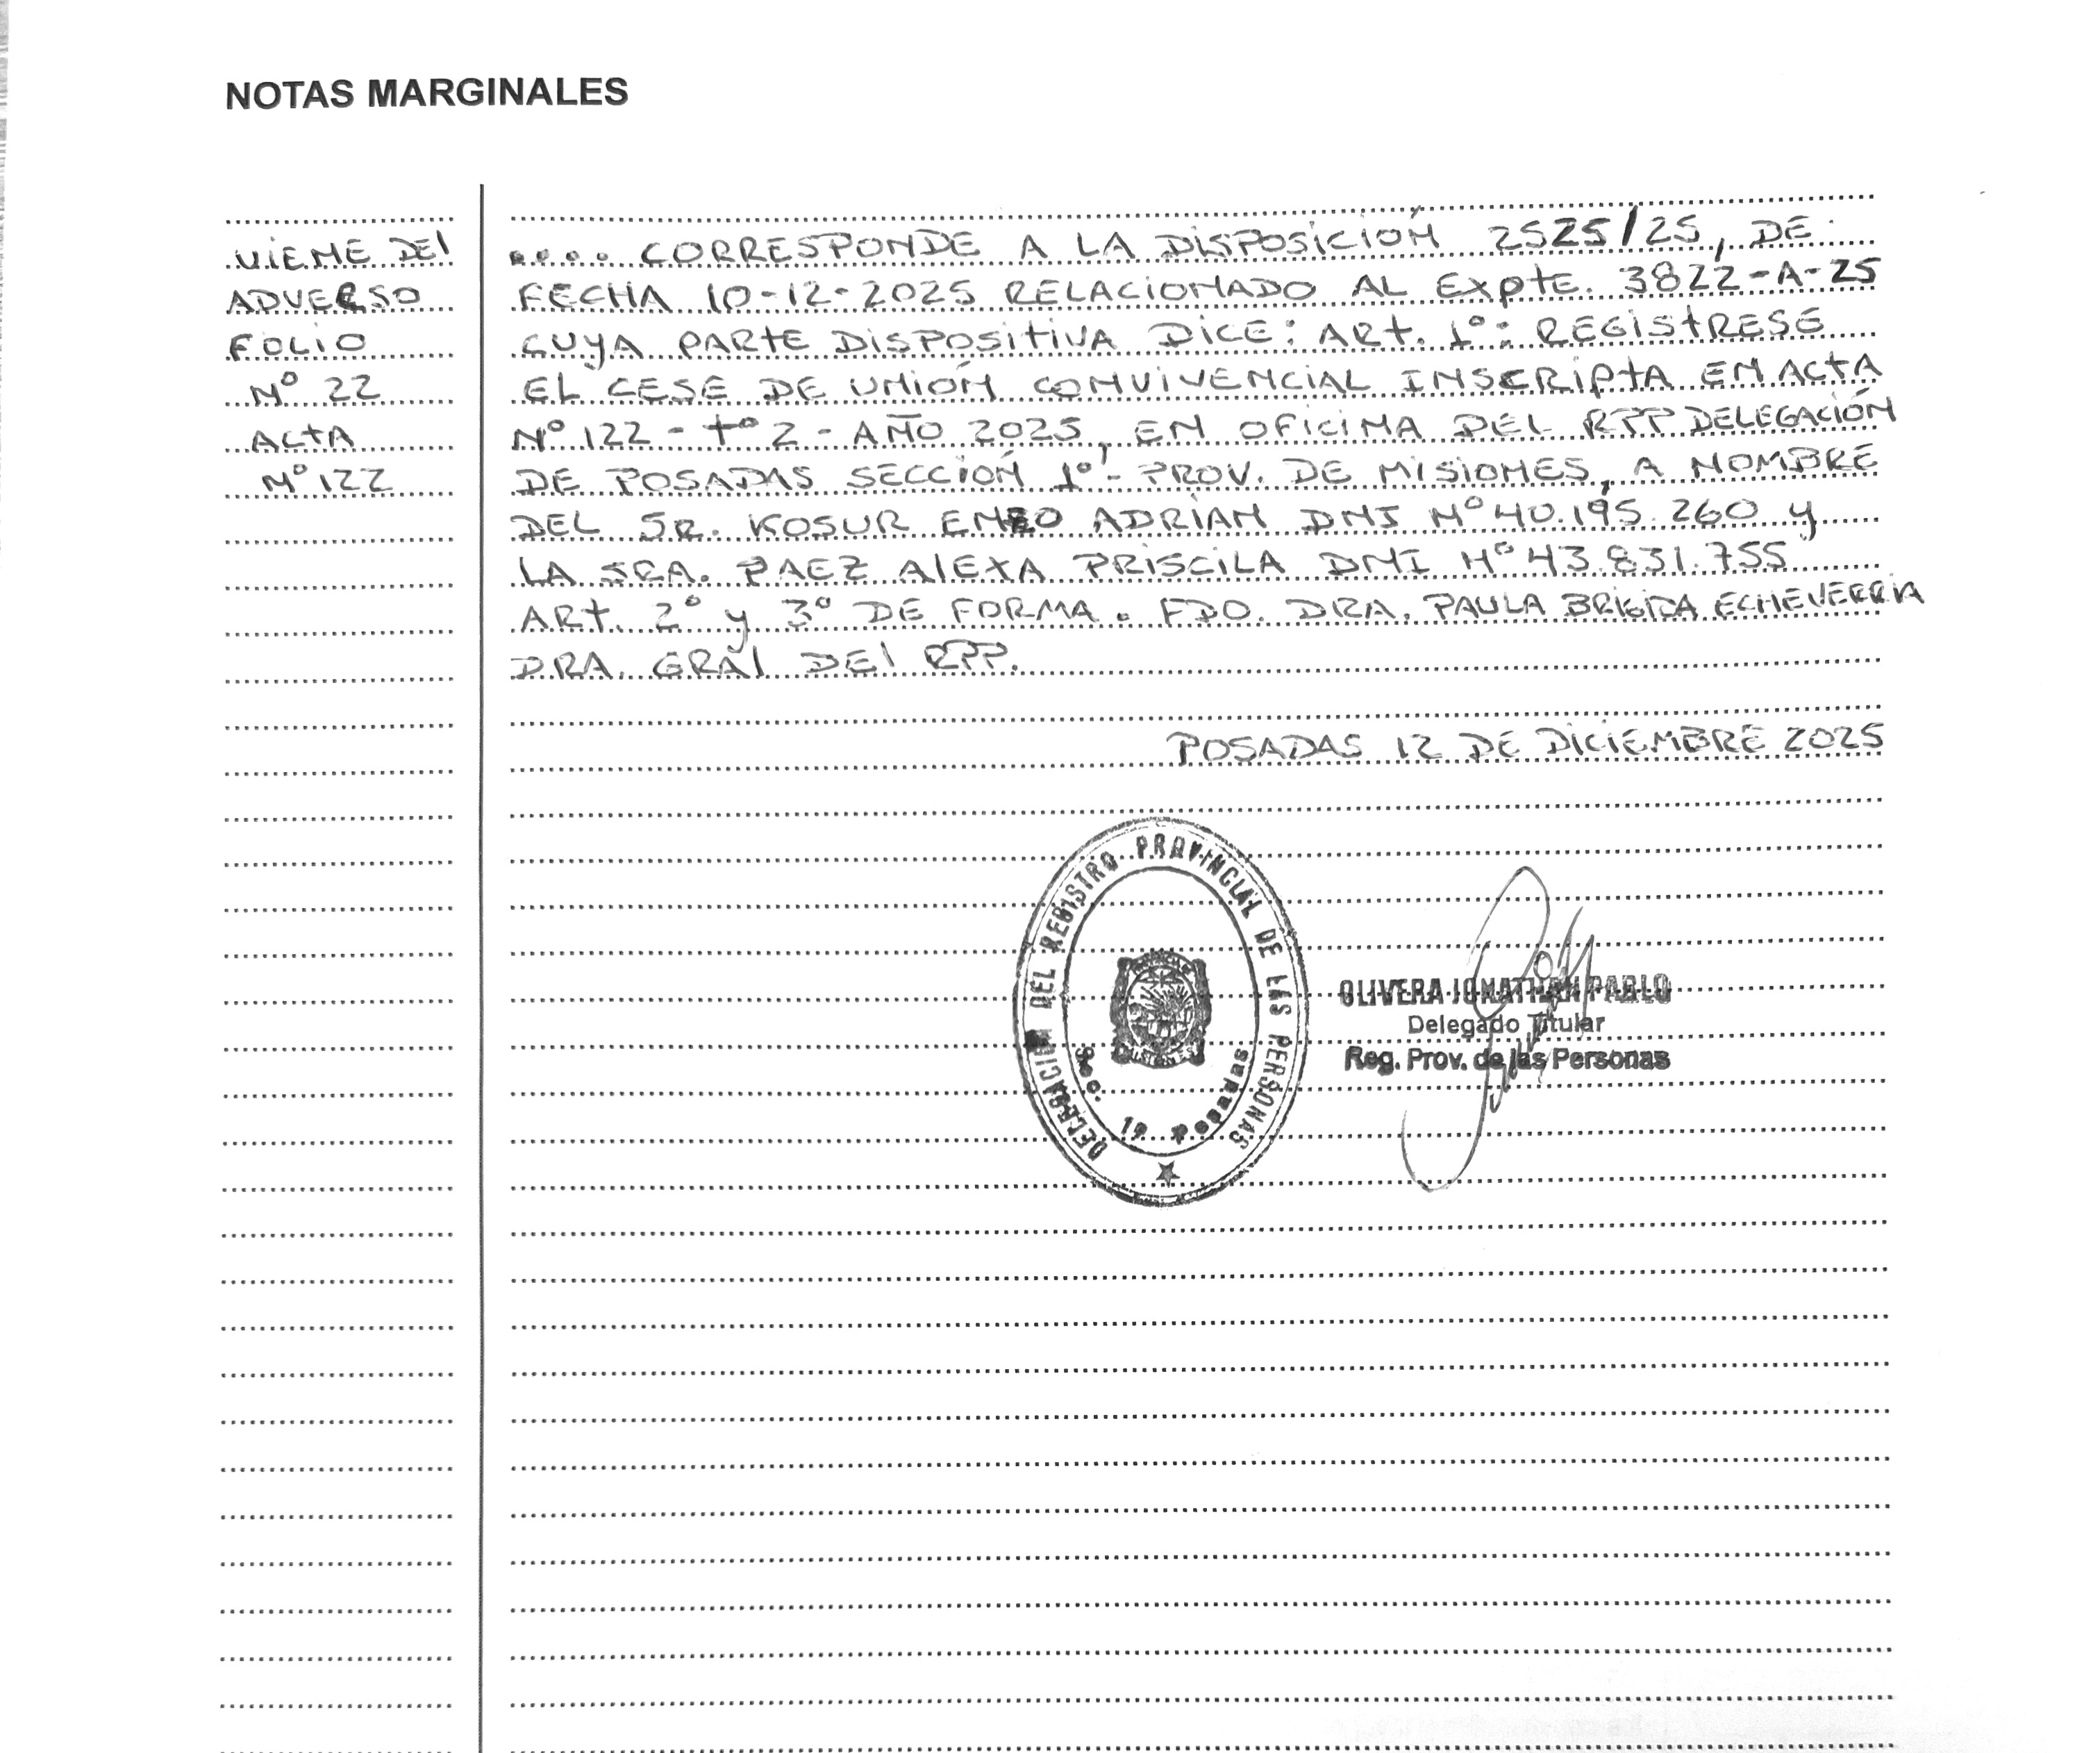 NOTAS MARGINALES
VIENE DEL
ADVERSO
FOLIO
Nº 22
ACTA
Nº 122
.... CORRESPONDE A LA DISPOSICIÓN 2525/25, DE
FECHA 10-12-2025 RELACIONADO AL EXPTE. 3822-A-25
CUYA PARTE DISPOSITIVA DICE: ART. 1º: REGISTRESE
EL CESE DE UNIÓN CONVIVENCIAL INSCRIPTA EN ACTA
Nº 122 - Tº 2 - AÑO 2025, EN OFICINA DEL RPP DELEGACIÓN
DE POSADAS SECCIÓN 1º - PROV. DE MISIONES, A NOMBRE
DEL SR. KOSUR ENZO ADRIAN DNI Nº 40.195.260 y
LA SRA. PAEZ ALEXA PRISCILA DNI Nº 43.831.755
ART. 2º y 3º DE FORMA. FDO. DRA. PAULA BRIGIDA ECHEVERRIA
DRA. GRAL DEL RPP.
POSADAS 12 DE DICIEMBRE 2025
DELEGACION DEL REGISTRO PROVINCIAL DE LAS PERSONAS
Sec. 1ª Posadas
OLIVERA JONATHAN PABLO
Delegado Titular
Reg. Prov. de las Personas